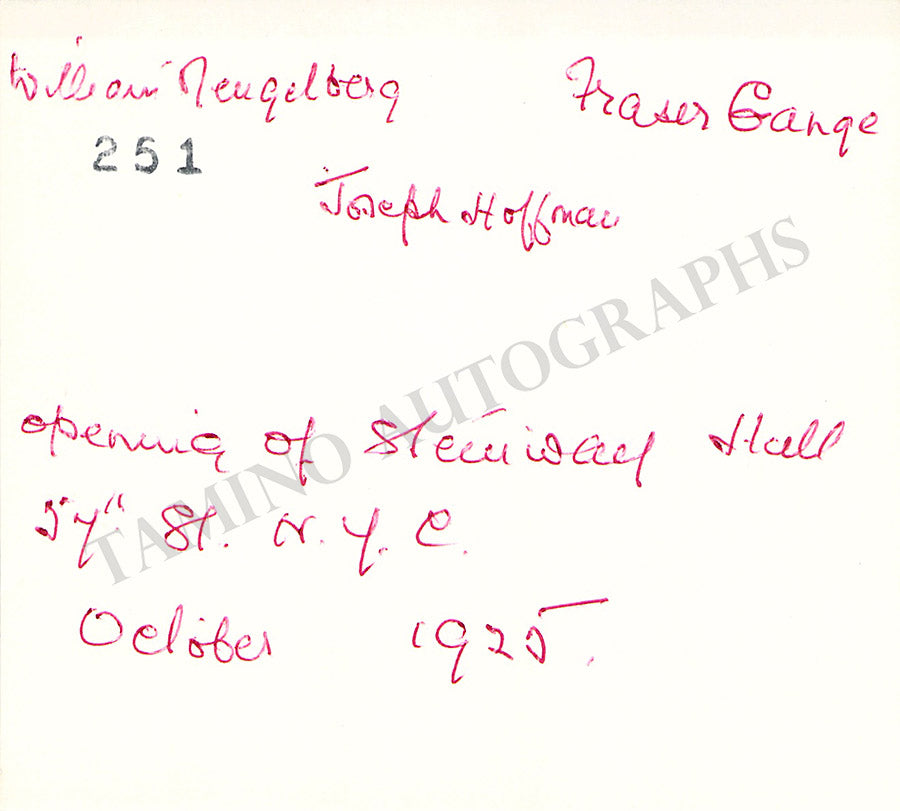 William Mengelberg Fraser Gange
251
Joseph Hoffman
TAMINO AUTOGRAPHS
opening of Steinway Hall
57" St. N.Y.C.
October 1925.